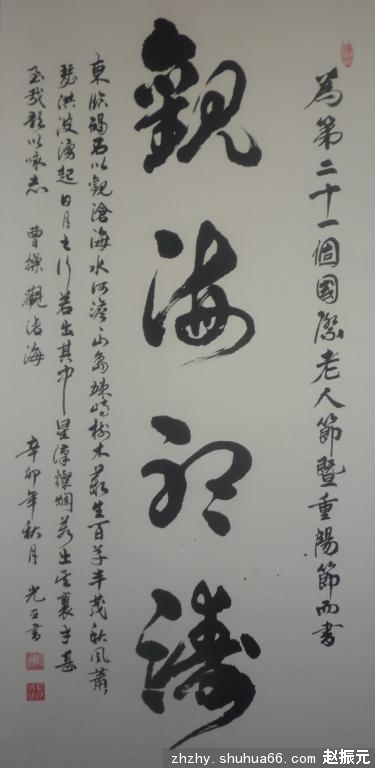 為第二十一個國際老人節暨重陽節而書
觀海聽濤
東臨碣石以觀滄海水何澹山島竦峙樹木叢生百草丰茂秋風蕭
瑟洪波湧起日月之行若出其中星漢燦爛若出其裏幸甚
至哉歌以咏志 曹操 觀滄海
辛卯年秋月 光亞書
zhzhy.shuhua66.com 赵振元